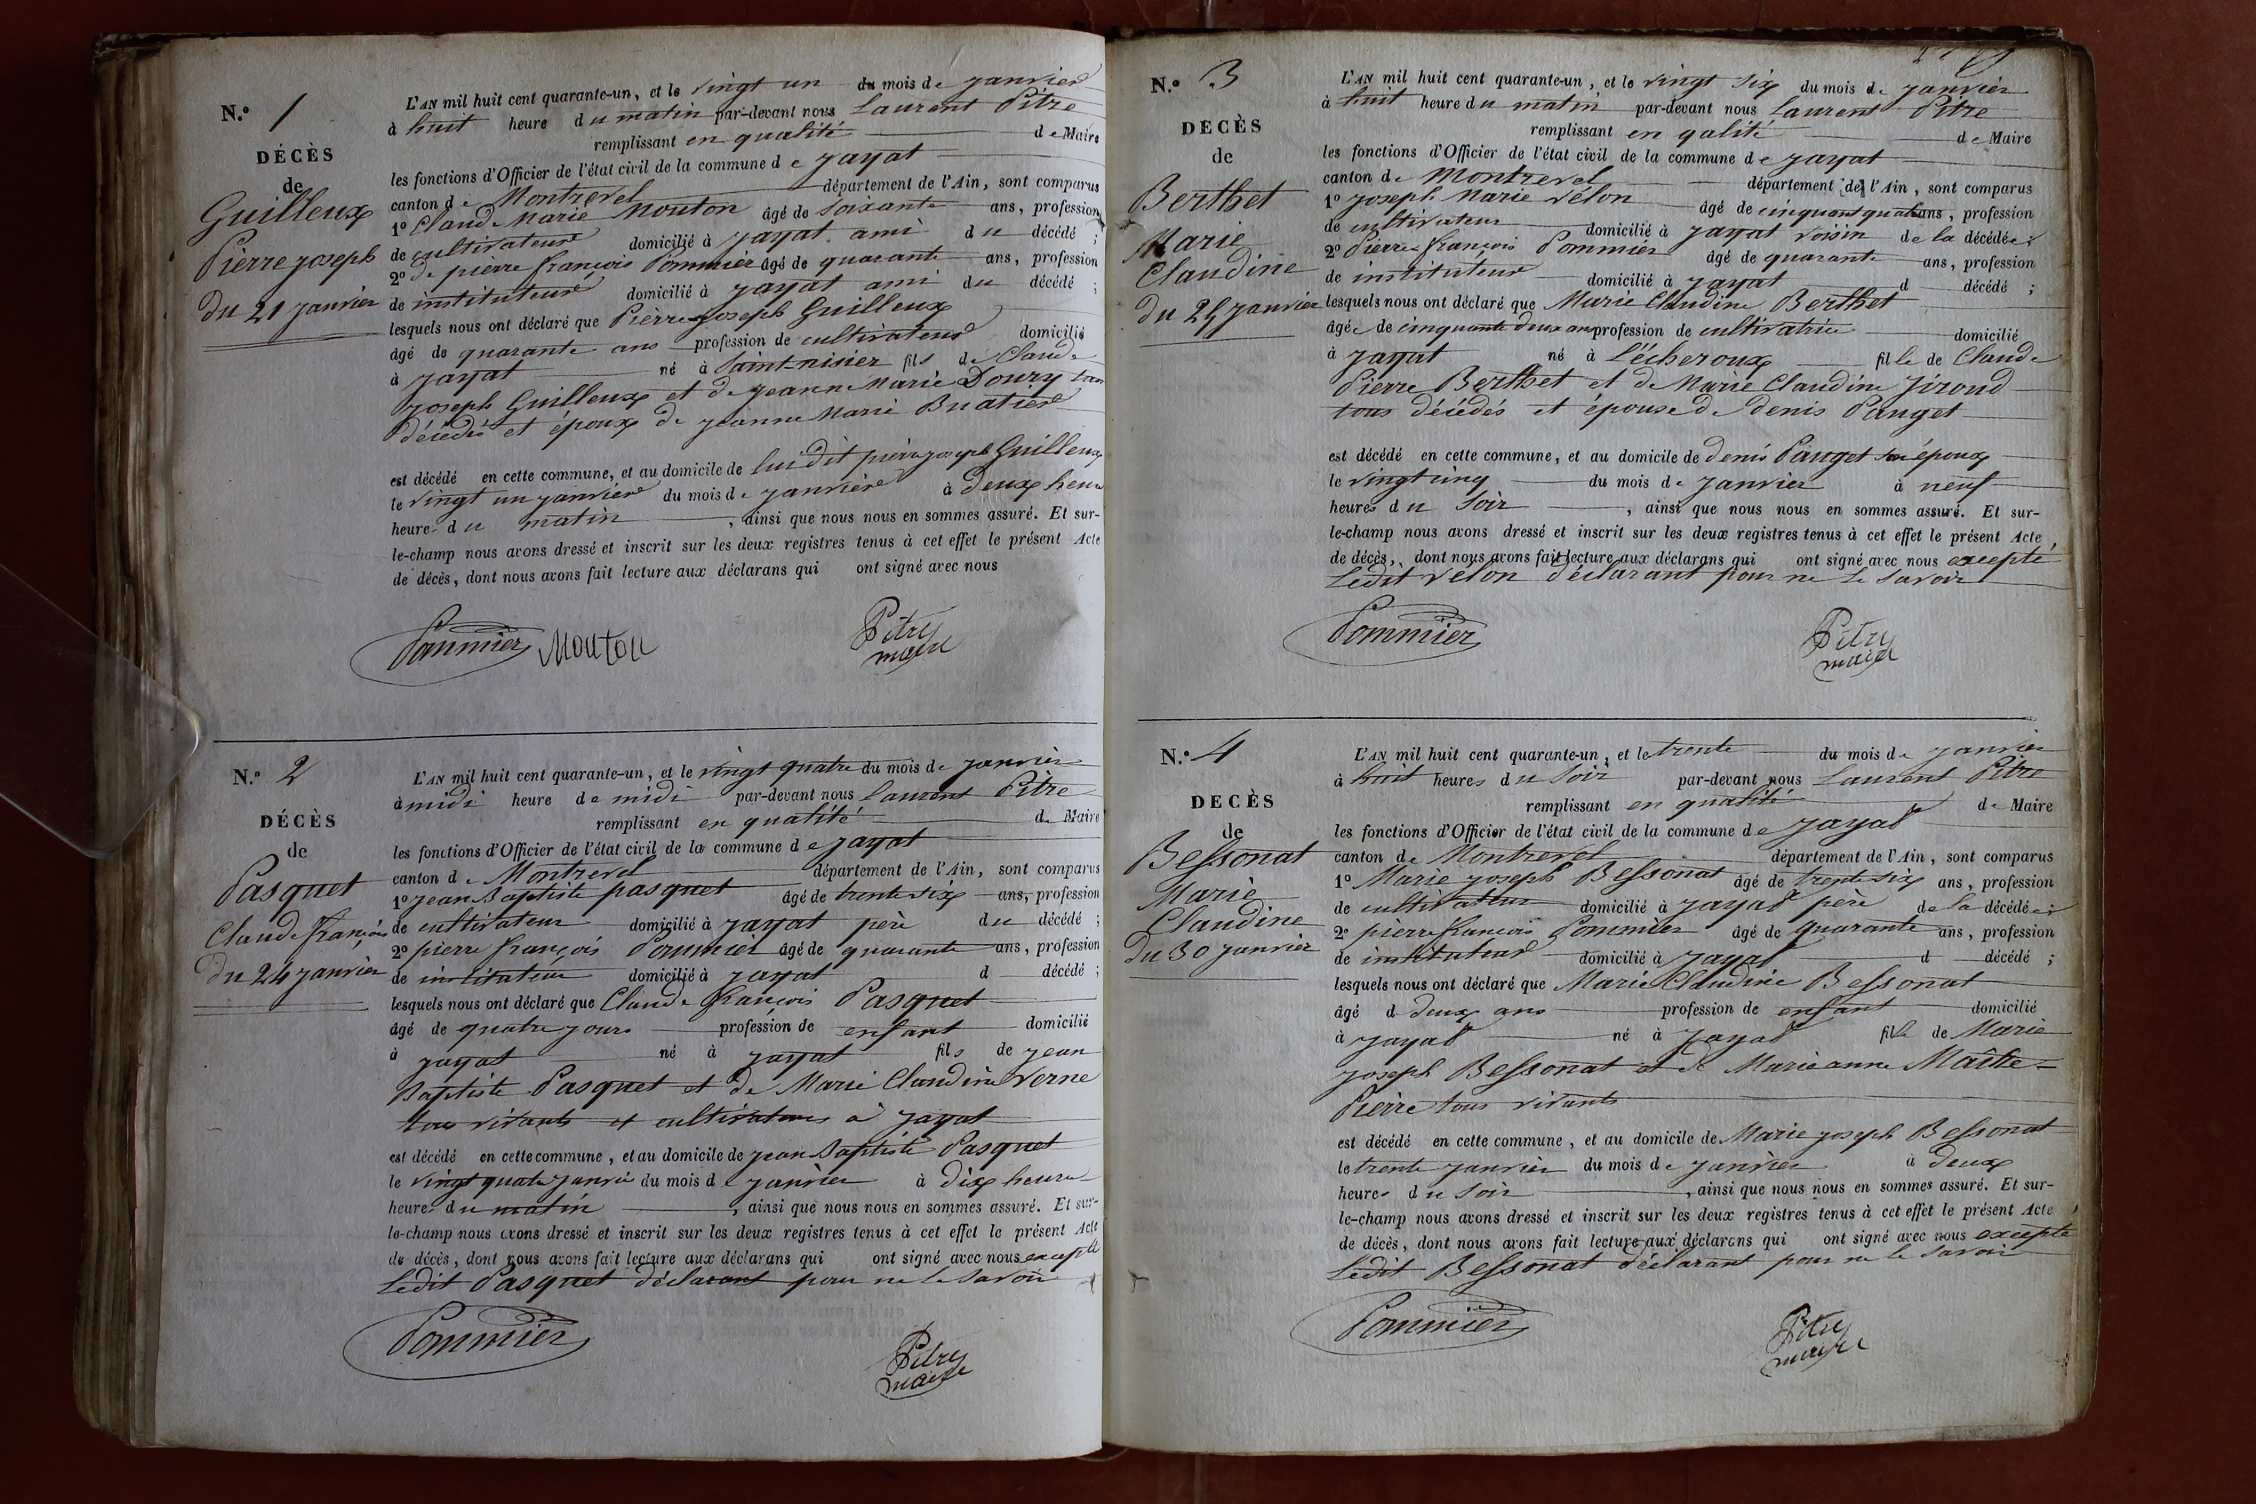 N.º 1
DÉCÈS
de
Guilleux
Pierre joseph
du 21 janvier
L'AN mil huit cent quarante-un, et le vingt un du mois de janvier
à huit heure du matin par-devant nous Laurent Pitre
remplissant en qualité de Maire
les fonctions d'Officier de l'état civil de la commune de jayat
canton de Montrevel département de l'Ain, sont comparus
1º Claud Marie Mouton âgé de soixante ans, profession
de cultivateur domicilié à jayat ami du décédé ;
2º pierre françois Pommier âgé de quarante ans, profession
de instituteur domicilié à jayat ami du décédé ;
lesquels nous ont déclaré que Pierre joseph Guilleux
âgé de quarante ans profession de cultivateur domicilié
à jayat né à Saint-nisier fils de Claude
joseph Guilleux et de jeanne Marie Doury
décédés et époux de jeanne Marie Buatier
est décédé en cette commune, et au domicile de lui dit pierre joseph Guilleux
le vingt un janvier du mois de janvier à deux heure
heures du matin, ainsi que nous nous en sommes assuré. Et sur-
le-champ nous avons dressé et inscrit sur les deux registres tenus à cet effet le présent Acte
de décès, dont nous avons fait lecture aux déclarans qui ont signé avec nous
Pommier Mouton Pitre
maire
N.º 2
DÉCÈS
de
Pasquet
Claude françois
du 24 janvier
L'AN mil huit cent quarante-un, et le vingt quatre du mois de janvier
à midi heure de midi par-devant nous laurent Pitre
remplissant en qualité de Maire
les fonctions d'Officier de l'état civil de la commune de jayat
canton de Montrevel département de l'Ain, sont comparus
1º jean Baptiste pasquet âgé de trente six ans, profession
de cultivateur domicilié à jayat père du décédé ;
2º pierre françois Pommier âgé de quarante ans, profession
de instituteur domicilié à jayat d décédé ;
lesquels nous ont déclaré que Claude françois Pasquet
âgé de quatre jours profession de enfant domicilié
à jayat né à jayat fils de jean
Baptiste Pasquet et de Marie Claudine Verne
tous vivants et cultivateurs à jayat
est décédé en cette commune, et au domicile de jean Baptiste Pasquet
le vingt quatre janvier du mois de janvier à dix heure
heures du matin, ainsi que nous nous en sommes assuré. Et sur-
le-champ nous avons dressé et inscrit sur les deux registres tenus à cet effet le présent Acte
de décès, dont nous avons fait lecture aux déclarans qui ont signé avec nous excepté
Ledit Pasquet déclarant pour ne le savoir
Pommier Pitre
maire
N.º 3
DÉCÈS
de
Berthet
Marie
Claudine
du 25 janvier
L'AN mil huit cent quarante-un, et le vingt six du mois de janvier
à huit heure du matin par-devant nous laurent Pitre
remplissant en qalité de Maire
les fonctions d'Officier de l'état civil de la commune de jayat
canton de Montrevel département de l'Ain, sont comparus
1º joseph Marie Velon âgé de cinquant quatre ans, profession
de cultivateur domicilié à jayat voisin de la décédée ;
2º Pierre françois Pommier âgé de quarante ans, profession
de instituteur domicilié à jayat d décédé ;
lesquels nous ont déclaré que Marie Claudine Berthet
âgée de cinquante deux ans profession de cultivatrice domicilié
à jayat né à L'écheroux fille de Claude
Pierre Berthet et de Marie Claudine Giroud
tous décédés et épouse de denis Pauget
est décédé en cette commune, et au domicile de denis Pauget son époux
le vingt cinq du mois de janvier à neuf
heures du Soir, ainsi que nous nous en sommes assuré. Et sur-
le-champ nous avons dressé et inscrit sur les deux registres tenus à cet effet le présent Acte
de décès, dont nous avons fait lecture aux déclarans qui ont signé avec nous excepté
Ledit Velon déclarant pour ne le savoir
Pommier Pitre
maire
N.º 4
DÉCÈS
de
Bessonat
Marie
Claudine
du 30 janvier
L'AN mil huit cent quarante-un, et le trente du mois de janvier
à huit heures du Soir par-devant nous Laurent Pitre
remplissant en qualité de Maire
les fonctions d'Officier de l'état civil de la commune de jayat
canton de Montrevel département de l'Ain, sont comparus
1º Marie joseph Bessonat âgé de trente six ans, profession
de cultivateur domicilié à jayat père de la décédée ;
2º pierre françois Pommier âgé de quarante ans, profession
de instituteur domicilié à jayat d décédé ;
lesquels nous ont déclaré que Marie Claudine Bessonat
âgé d deux ans profession de enfant domicilié
à jayat né à jayat fille de Marie
joseph Bessonat et de Marie anne Maître-
Pierre tous vivants
est décédé en cette commune, et au domicile de Marie joseph Bessonat
le trente janvier du mois de janvier à deux
heures du Soir, ainsi que nous nous en sommes assuré. Et sur-
le-champ nous avons dressé et inscrit sur les deux registres tenus à cet effet le présent Acte
de décès, dont nous avons fait lecture aux déclarans qui ont signé avec nous excepté
Ledit Bessonat déclarant pour ne le savoir
Pommier Pitre
maire